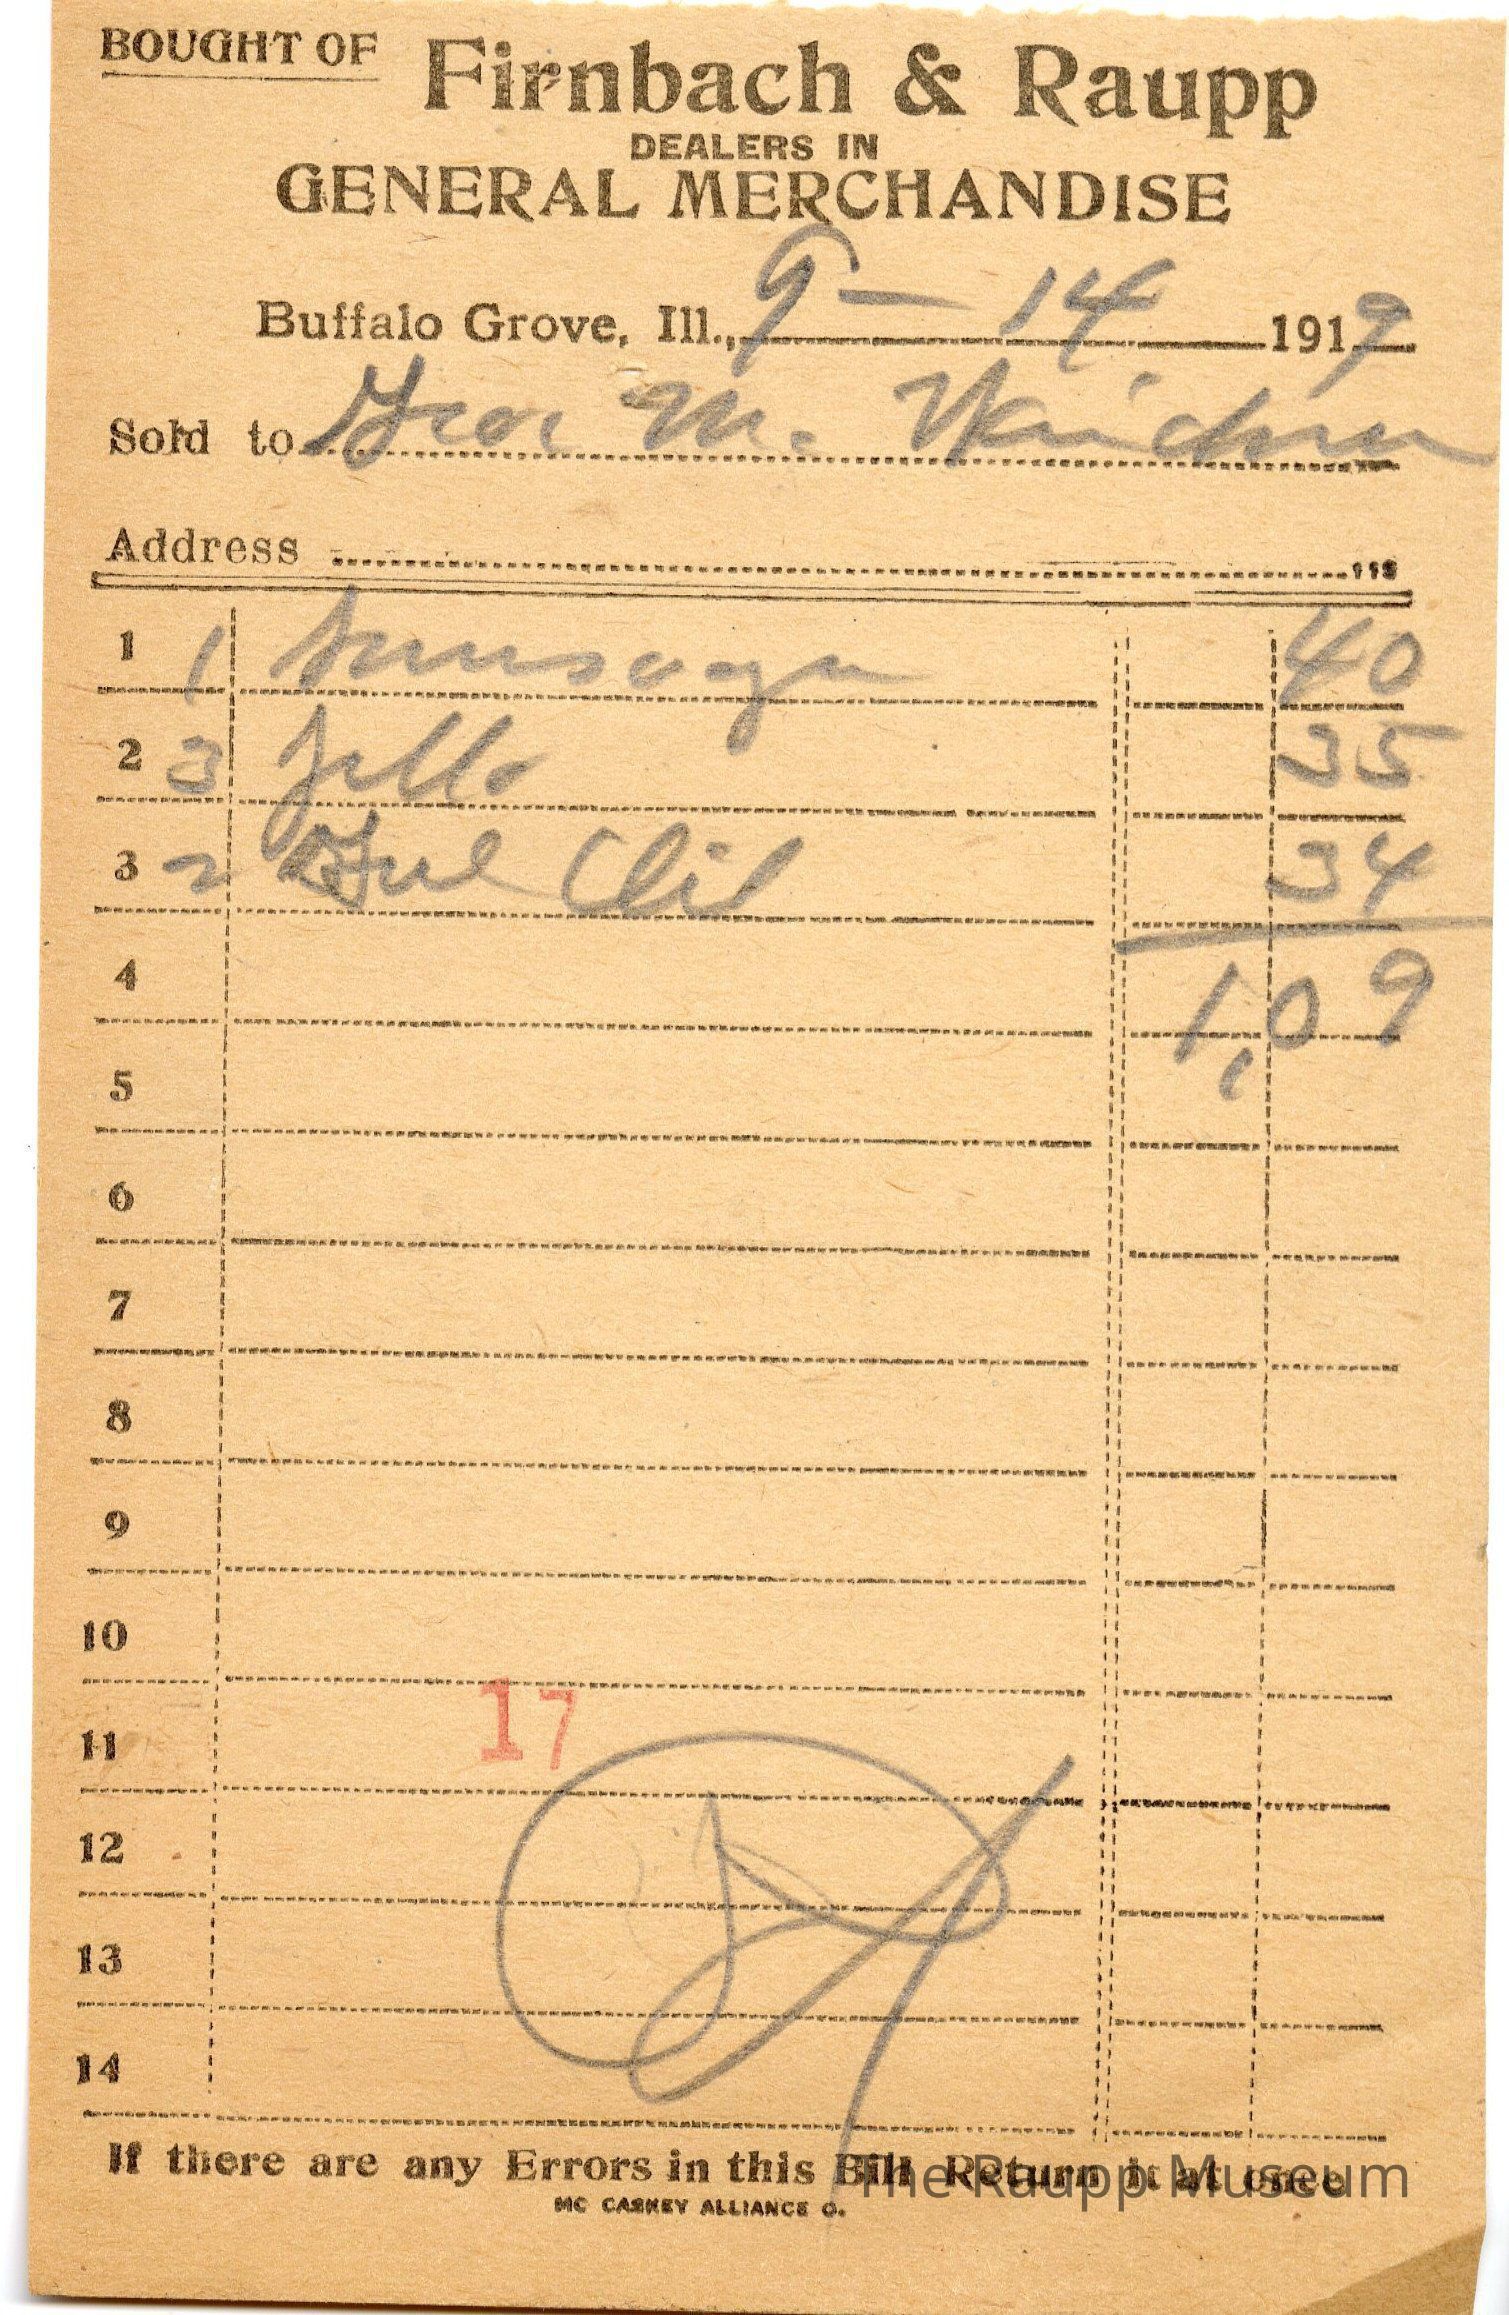 BOUGHT OF Firnbach & Raupp
DEALERS IN
GENERAL MERCHANDISE
Buffalo Grove, Ill., 9-14 1919
Sold to Geo. M.
Address
1 1 40
2 3 Jello 35
3 2 34
4 1,09
5
6
7
8
9
10
17
11
12
13
14
If there are any Errors in this Bill Return it at once
MC CASKEY ALLIANCE O.
The Raupp Museum